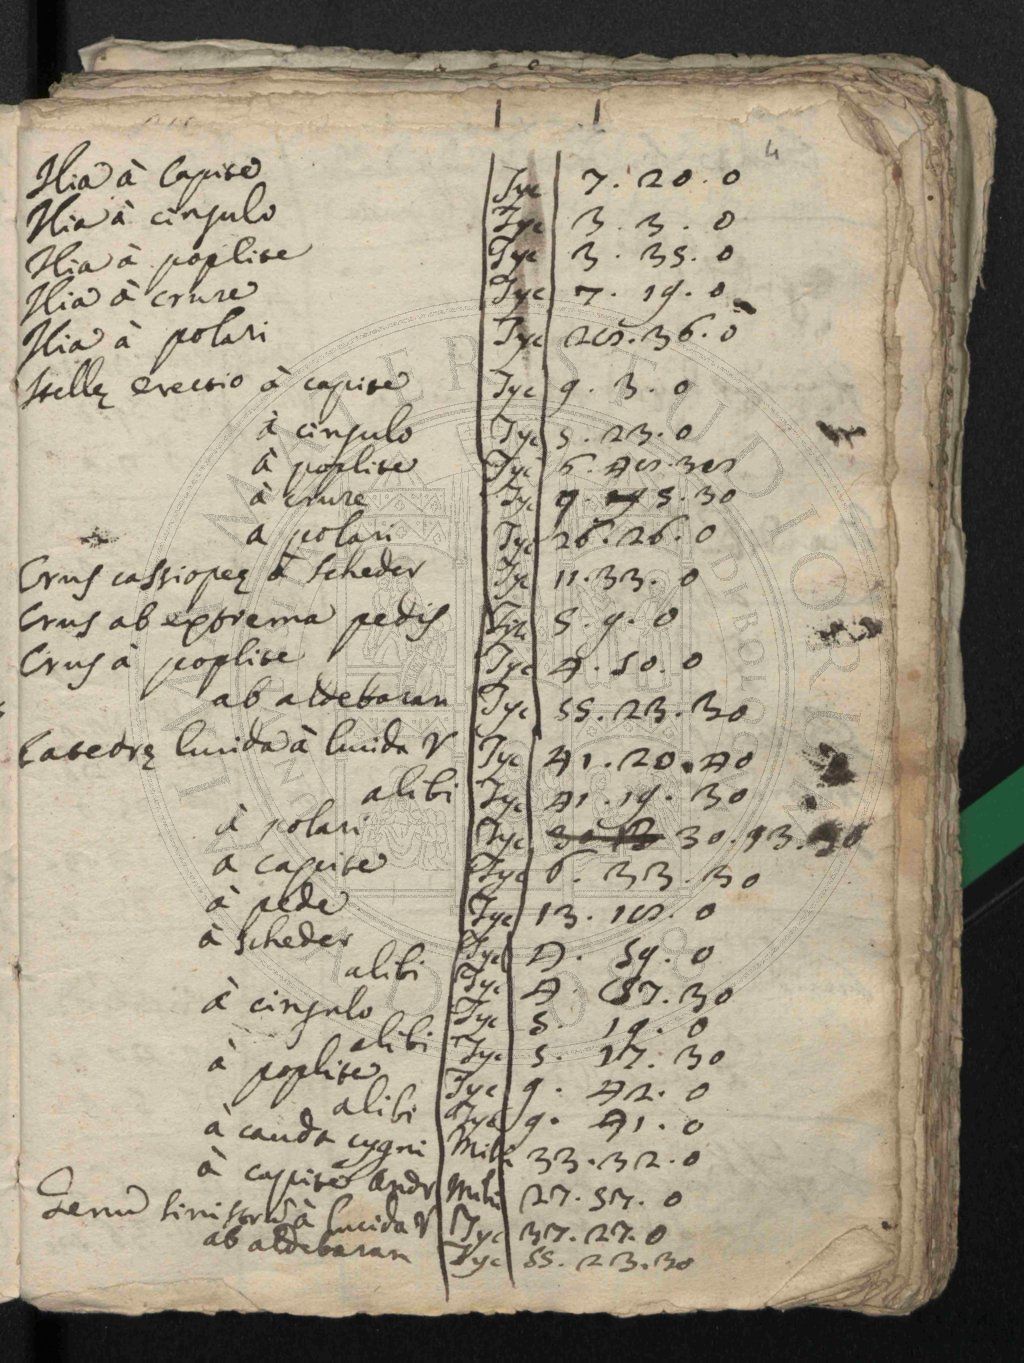 4
Ilia à capite Tyc 7. 20. 0
Ilia à cingulo Tyc 3. 3. 0
Ilia à poplite Tyc 3. 35. 0
Ilia à crure Tyc 7. 19. 0
Ilia à polari Tyc 28. 36. 0
Stellę erectio à capite Tyc 9. 3. 0
à cingulo Tyc 5. 23. 0
à poplite Tyc 6. 48. 30
à crure Tyc 9. 5. 30
a polari Tyc 26. 26. 0
Crus cassiopeę à scheder Tyc 11. 33. 0
Crus ab extrema pedis Tyc 5. 9. 0
Crus à poplite Tyc 4. 50. 0
ab aldebaran Tyc 55. 23. 30
Catedrę lucida à lucida ♈ Tyc 41. 20. 40
alibi Tyc 41. 19. 30
à polari Tyc 30. 43. 30
a capite Tyc 6. 33. 30
à pede Tyc 13. 18. 0
à scheder Tyc 4. 59. 0
alibi Tyc 4. 57. 30
à cingulo Tyc 5. 19. 0
alibi Tyc 5. 17. 30
à poplite Tyc 9. 42. 0
alibi Tyc 9. 41. 0
à cauda cygni Mihi 33. 32. 0
à capite Andr Mihi 27. 57. 0
Genu sinistrũ à lucida ♈ Tyc 37. 27. 0
ab aldebaran Tyc 55. 23. 30